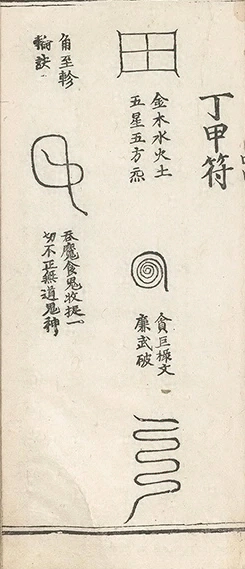 丁甲符
金木水火土
五星五方炁
貪巨祿文
廉武破
角至軫
輪訣
吞魔食鬼收捉一
切不正無道鬼神